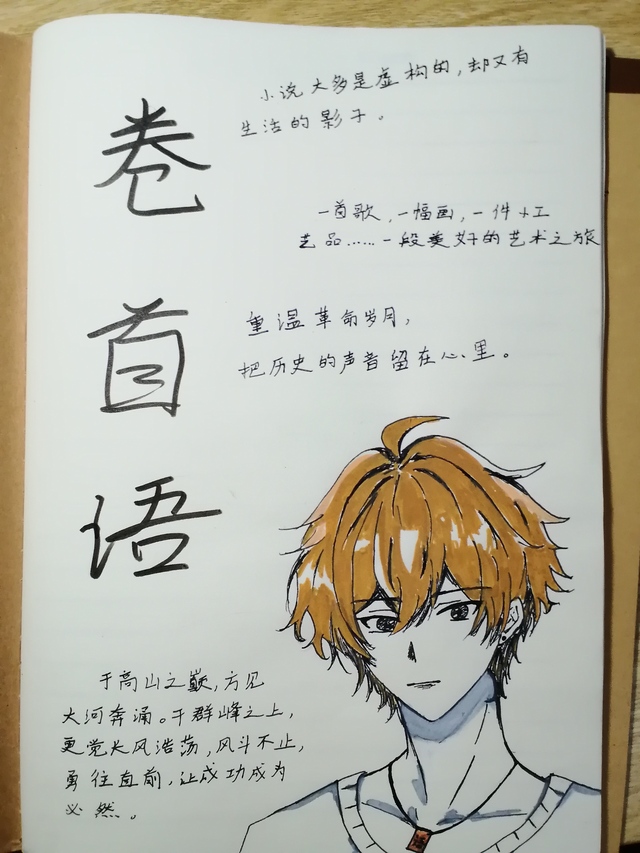 卷
首
语
小说大多是虚构的，却又有
生活的影子。
一首歌，一幅画，一件手工
艺品……一段美好的艺术之旅
重温革命岁月，
把历史的声音留在心里。
于高山之巅，方见
大河奔涌。于群峰之上，
更觉长风浩荡，风斗不止，
勇往直前，让成功成为
必然。